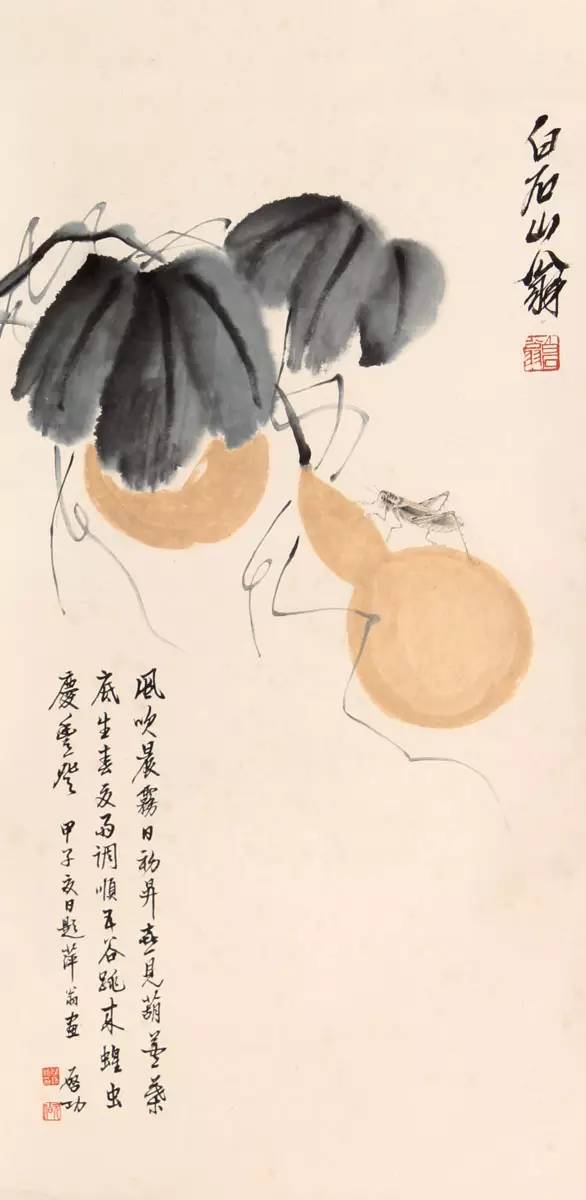 白石山翁
風吹晨霧日初昇喜見葫蘆葉
底生春夏雨调順五谷跳來蝗虫
慶豐登 甲子夏日題萍翁畫 啓功